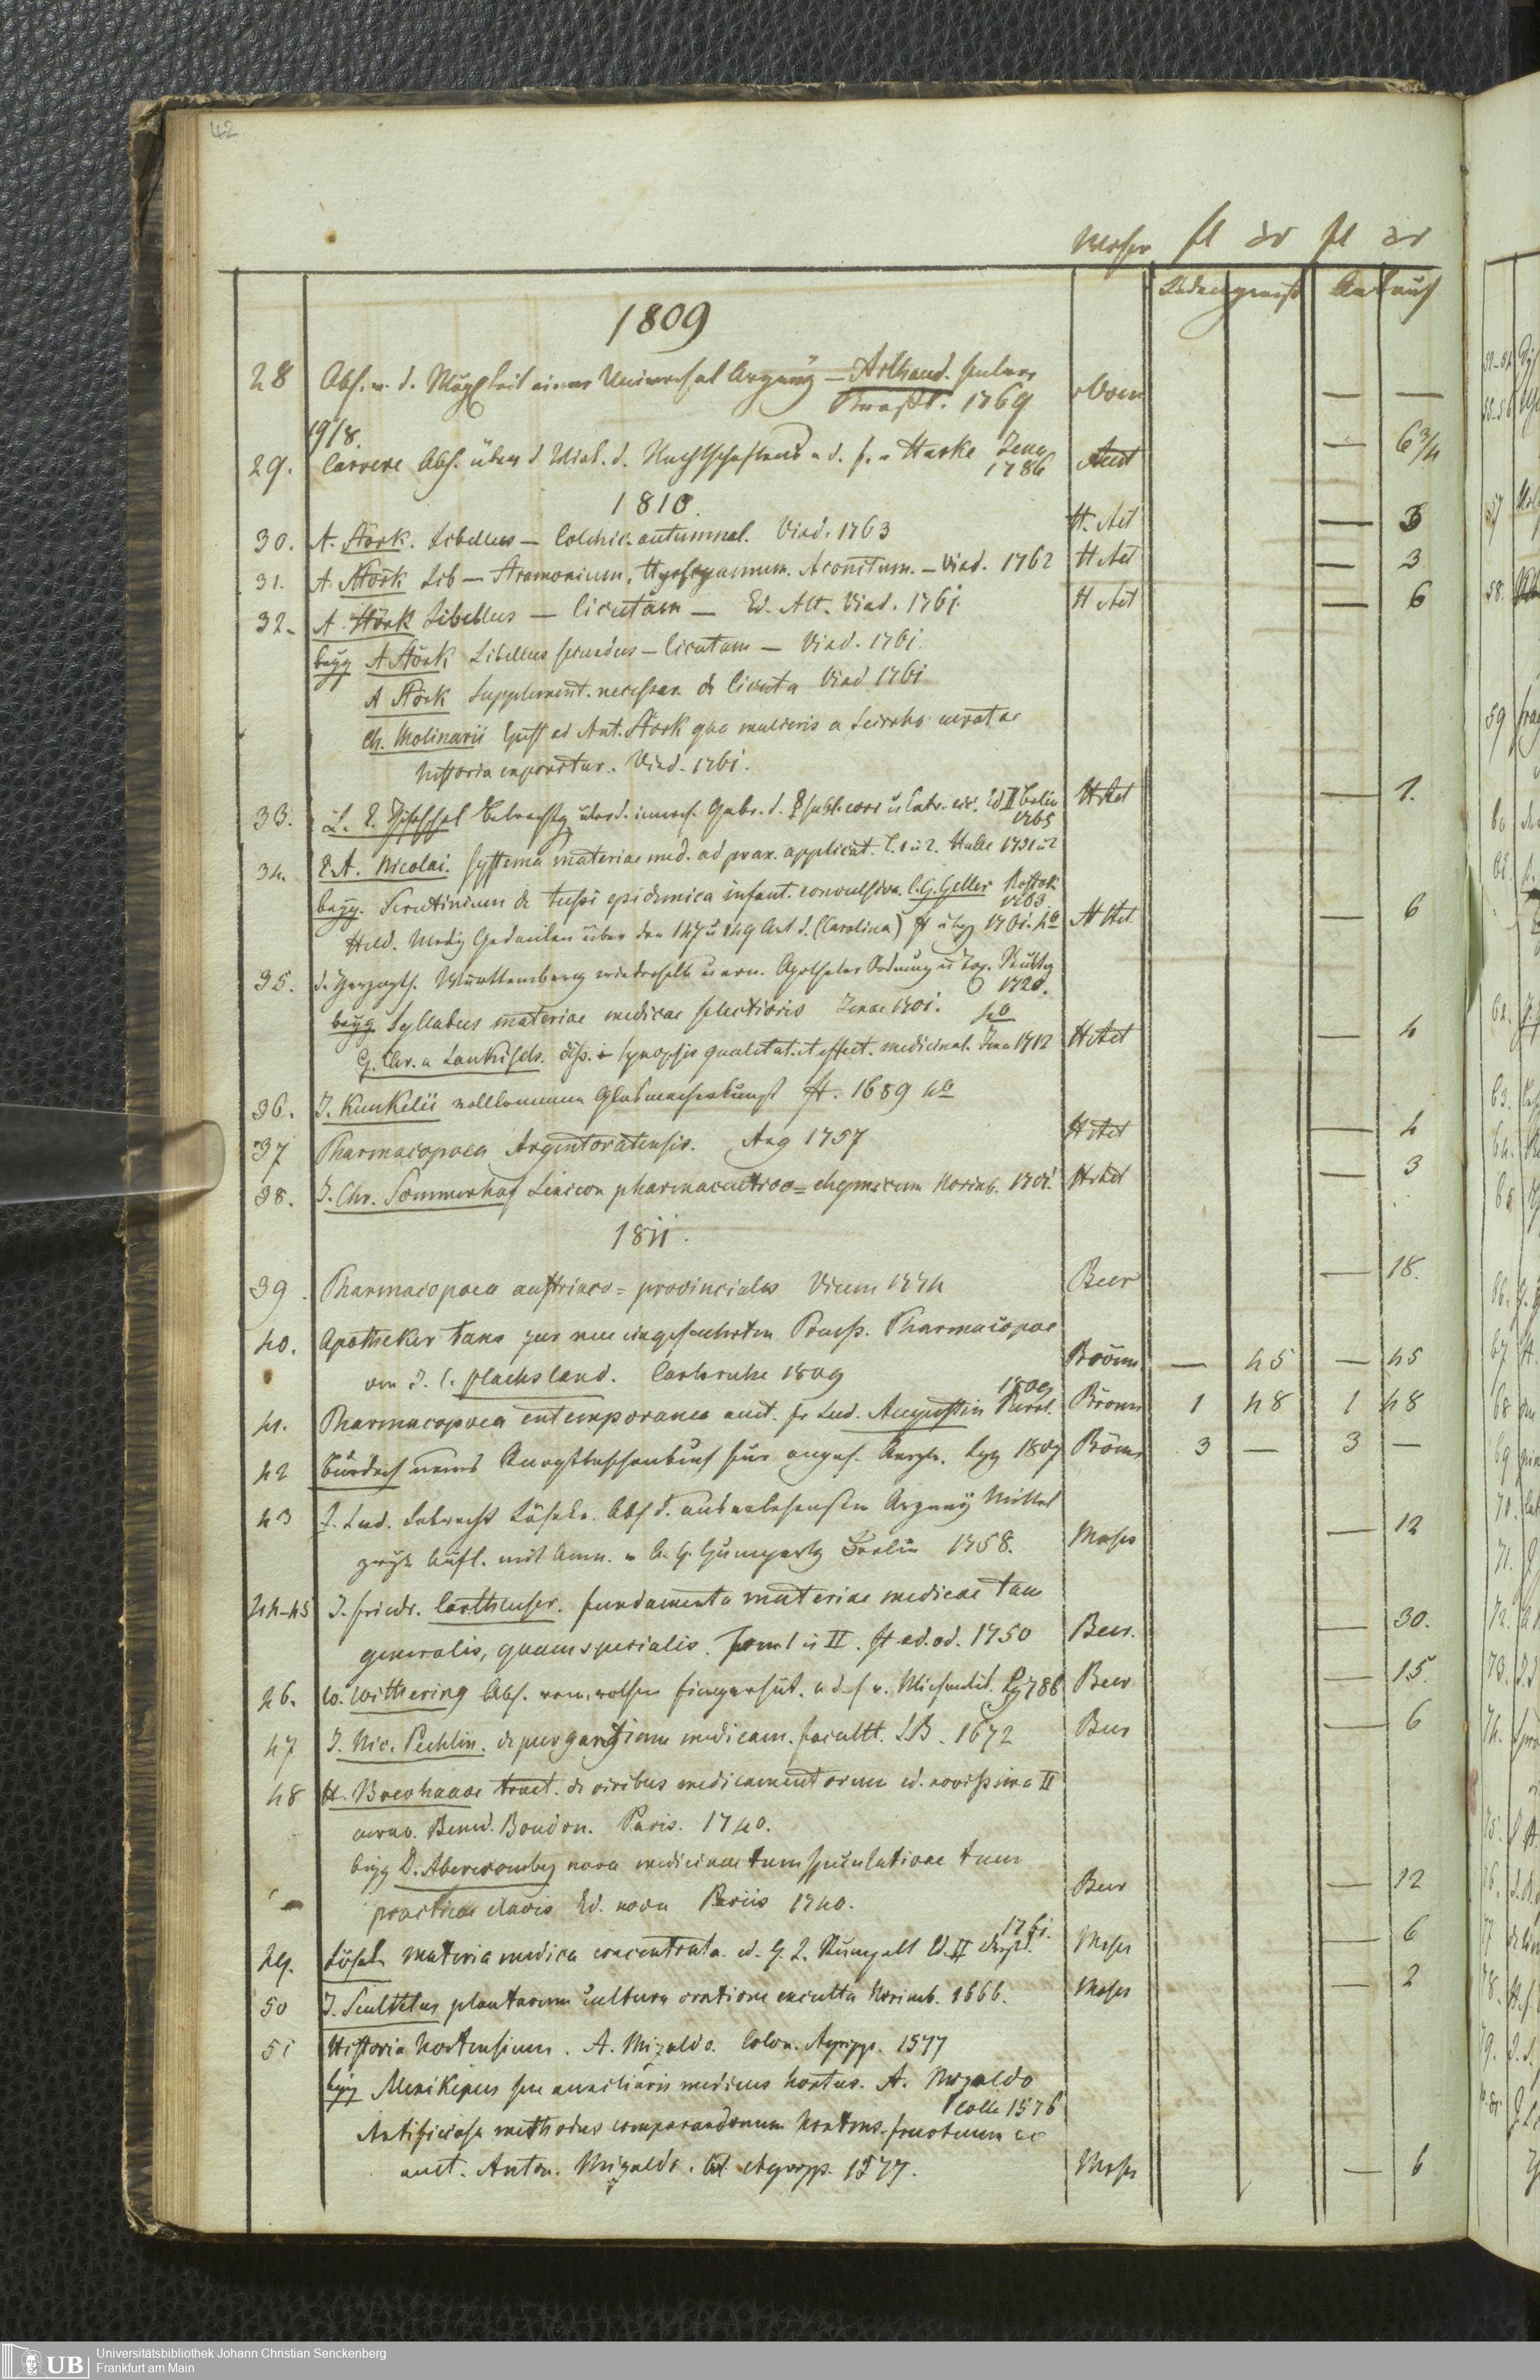 42
Woher fl xr fl xr
Ladenpreiß Ankauf
1809
28 Abh. v. d. Möglichkeit einer Universal Arzney — Ailhaud. pulver
Straßb. 1769 — —
1918.
29. Carrere Abh. über d Wirk. d. Nachtschattens a. d. f. v Starke Jena
1786 Auct — 6 3/4
1810.
30. A. Störk. Libellus — Colchic. autumnal. Vind. 1763 H. Act — 3
31. A. Störk Lib — Stramonium, Hyosciamum. Aconitum. — Vind. 1762 H Act — 3
32. A. Störk Libellus — Cicutam — Ed. Alt. Vind. 1761. H Act — 6
beyg A Störk Libellus secundus — Cicutam — Vind. 1761.
A Störk Supplement. necessar. de Cicuta Vind 1761
Ch. Molinarii Epist ad Ant. Störk qua mulieris a Scirrho curatae
historia exponitur. Vind. 1761.
33. Betrachtg über d. innerl. Gebr. d. Ed II Berlin
1765 H Act — 1.
34. E. A. Nicolai. Systema materiae med. ad prax. applicat. T. 1 u 2. Halle 1751 u 2
beyg. Scrutinium de tussi epidemica infant. convulsiva. C. G. Geller Rostok
1763
Held. Mediz Gedanken über den 147 u 149 Art d. (Carolina) 4º H Act — 6
35. d. Herzogth. Württemberg wiederholte u ern. Apotheker Ordnung u Tax. Stuttg
1720.
beyg Syllabus materiae medicae selectioris Jenae 1701. 4º
G. Chr. a Lankisch. diss. Synopsis qualitat. et effect. medicinal. Jena 1712 H Act — 4
36. J. Kunkelii vollkommene Glasmacherkunst ff. 1689 4º
37 Pharmacopoea Argentoratensis. Arg 1757 H Act — 4
38. J. Chr. Sommerhof Lexicon pharmaceutico=chymicum Norimb. 1701. H Act — 3
1811.
39. Pharmacopoea austriaco=provincialis Vienn 1774 Beer — 18.
40. Apotheker Taxe zur neu eingefuehrten Preuss. Pharmacopoe
von J. C. Flachsland. Carlsruhe 1809 Brönn — 45 — 45
41. Pharmacopoea extemporanea auct. fr Lud. Augustin Berol. 1809 Brönn 1 48 1 48
42 Burdach neues Rezepttaschenbuch für angeh. Aerzte. Lpz 1807 Brönn 3 — 3 —
43 J. Lud. Lebrecht Löseke. Abh d. auserlesensten Arzney Mittel
Aufl. mit Anm. v. Gumpertz Berlin 1758. Moses — 12
44-45 J. Friedr. Cartheuser. fundamenta materiae medicae tam
generalis, quam specialis. Tom I u II. ff. ad. od. 1750 Beer. — 30.
46. W. Withering Abh. vom rothen Fingerhut. a d. f v. Michaelis. Lpz 1786 Beer — 15.
47 J. Nic. Pechlin. de purgantium medicam. facultt. LB. 1672 Beer — 6
48 H. Boerhaave tract. de viribus medicamentorum ed. novissima II
curav. Bened. Boudon. Paris. 1740.
beyg D. Abercromby nova medicinae tum speculativae tum
practicae clavis Ed. nova Pariis 1740. Beer — 12
49. Lösek. materia medica concentrata. ed. G. L. Rumpelt Ed. II 1761. Moses — 6
50 J. Scultetus plantarum cultura oratione exculta Norimb. 1666. Moses — 2
51 Historia hortensium. A. Mizaldo. Colon. Agripp. 1577
beyg Alexikepus seu auxiliaris medicus hortus. A. Mizaldo
Colle 1576
Artificiosa methodus comparandorum hortens. fructuum
auct. Anton. Mizaldo. Col. Agripp. 1577. Moses — 6
UB Universitätsbibliothek Johann Christian Senckenberg
Frankfurt am Main